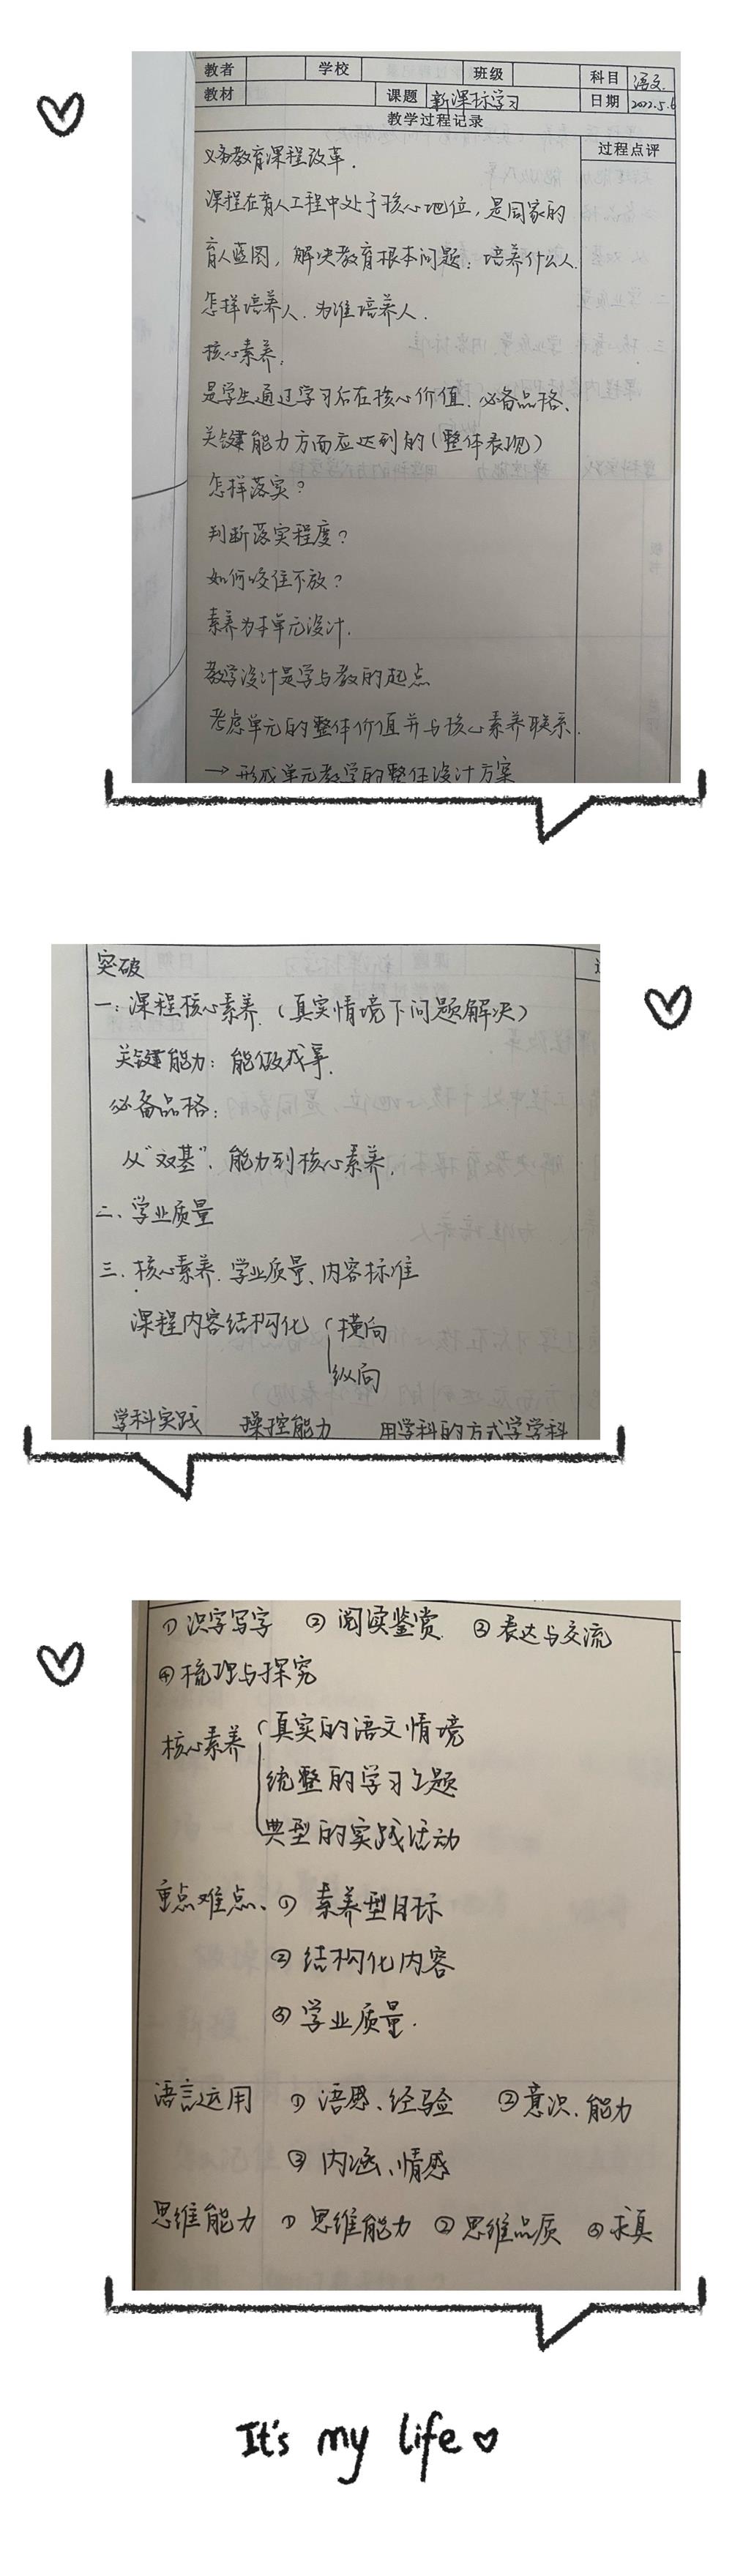 教者 学校 班级 科目 语文
教材 课题 新课标学习 日期 2022.5.6
教学过程记录
过程点评
义务教育课程改革.
课程在育人工程中处于核心地位,是国家的
育人蓝图,解决教育根本问题:培养什么人.
怎样培养人.为谁培养人.
核心素养:
是学生通过学习后在核心价值、必备品格、
关键能力方面应达到的(整体表现)
怎样落实?
判断落实程度?
如何咬住不放?
素养为本单元设计.
教学设计是学与教的起点
考虑单元的整体价值并与核心素养联系.
→形成单元教学的整体设计方案
突破
一:课程核心素养.(真实情境下问题解决)
关键能力:能做成事.
必备品格:
从"双基"、能力到核心素养.
二、学业质量
三.核心素养.学业质量、内容标准
课程内容结构化 横向
纵向
学科实践 操控能力 用学科的方式学学科
①识字写字 ②阅读鉴赏 ③表达与交流
④梳理与探究
核心素养 真实的语文情境
统整的学习主题
典型的实践活动
重点难点、①素养型目标
②结构化内容
③学业质量.
语言运用 ①语感、经验 ②意识、能力
③内涵、情感
思维能力 ①思维能力 ②思维品质 ③求真
It's my life